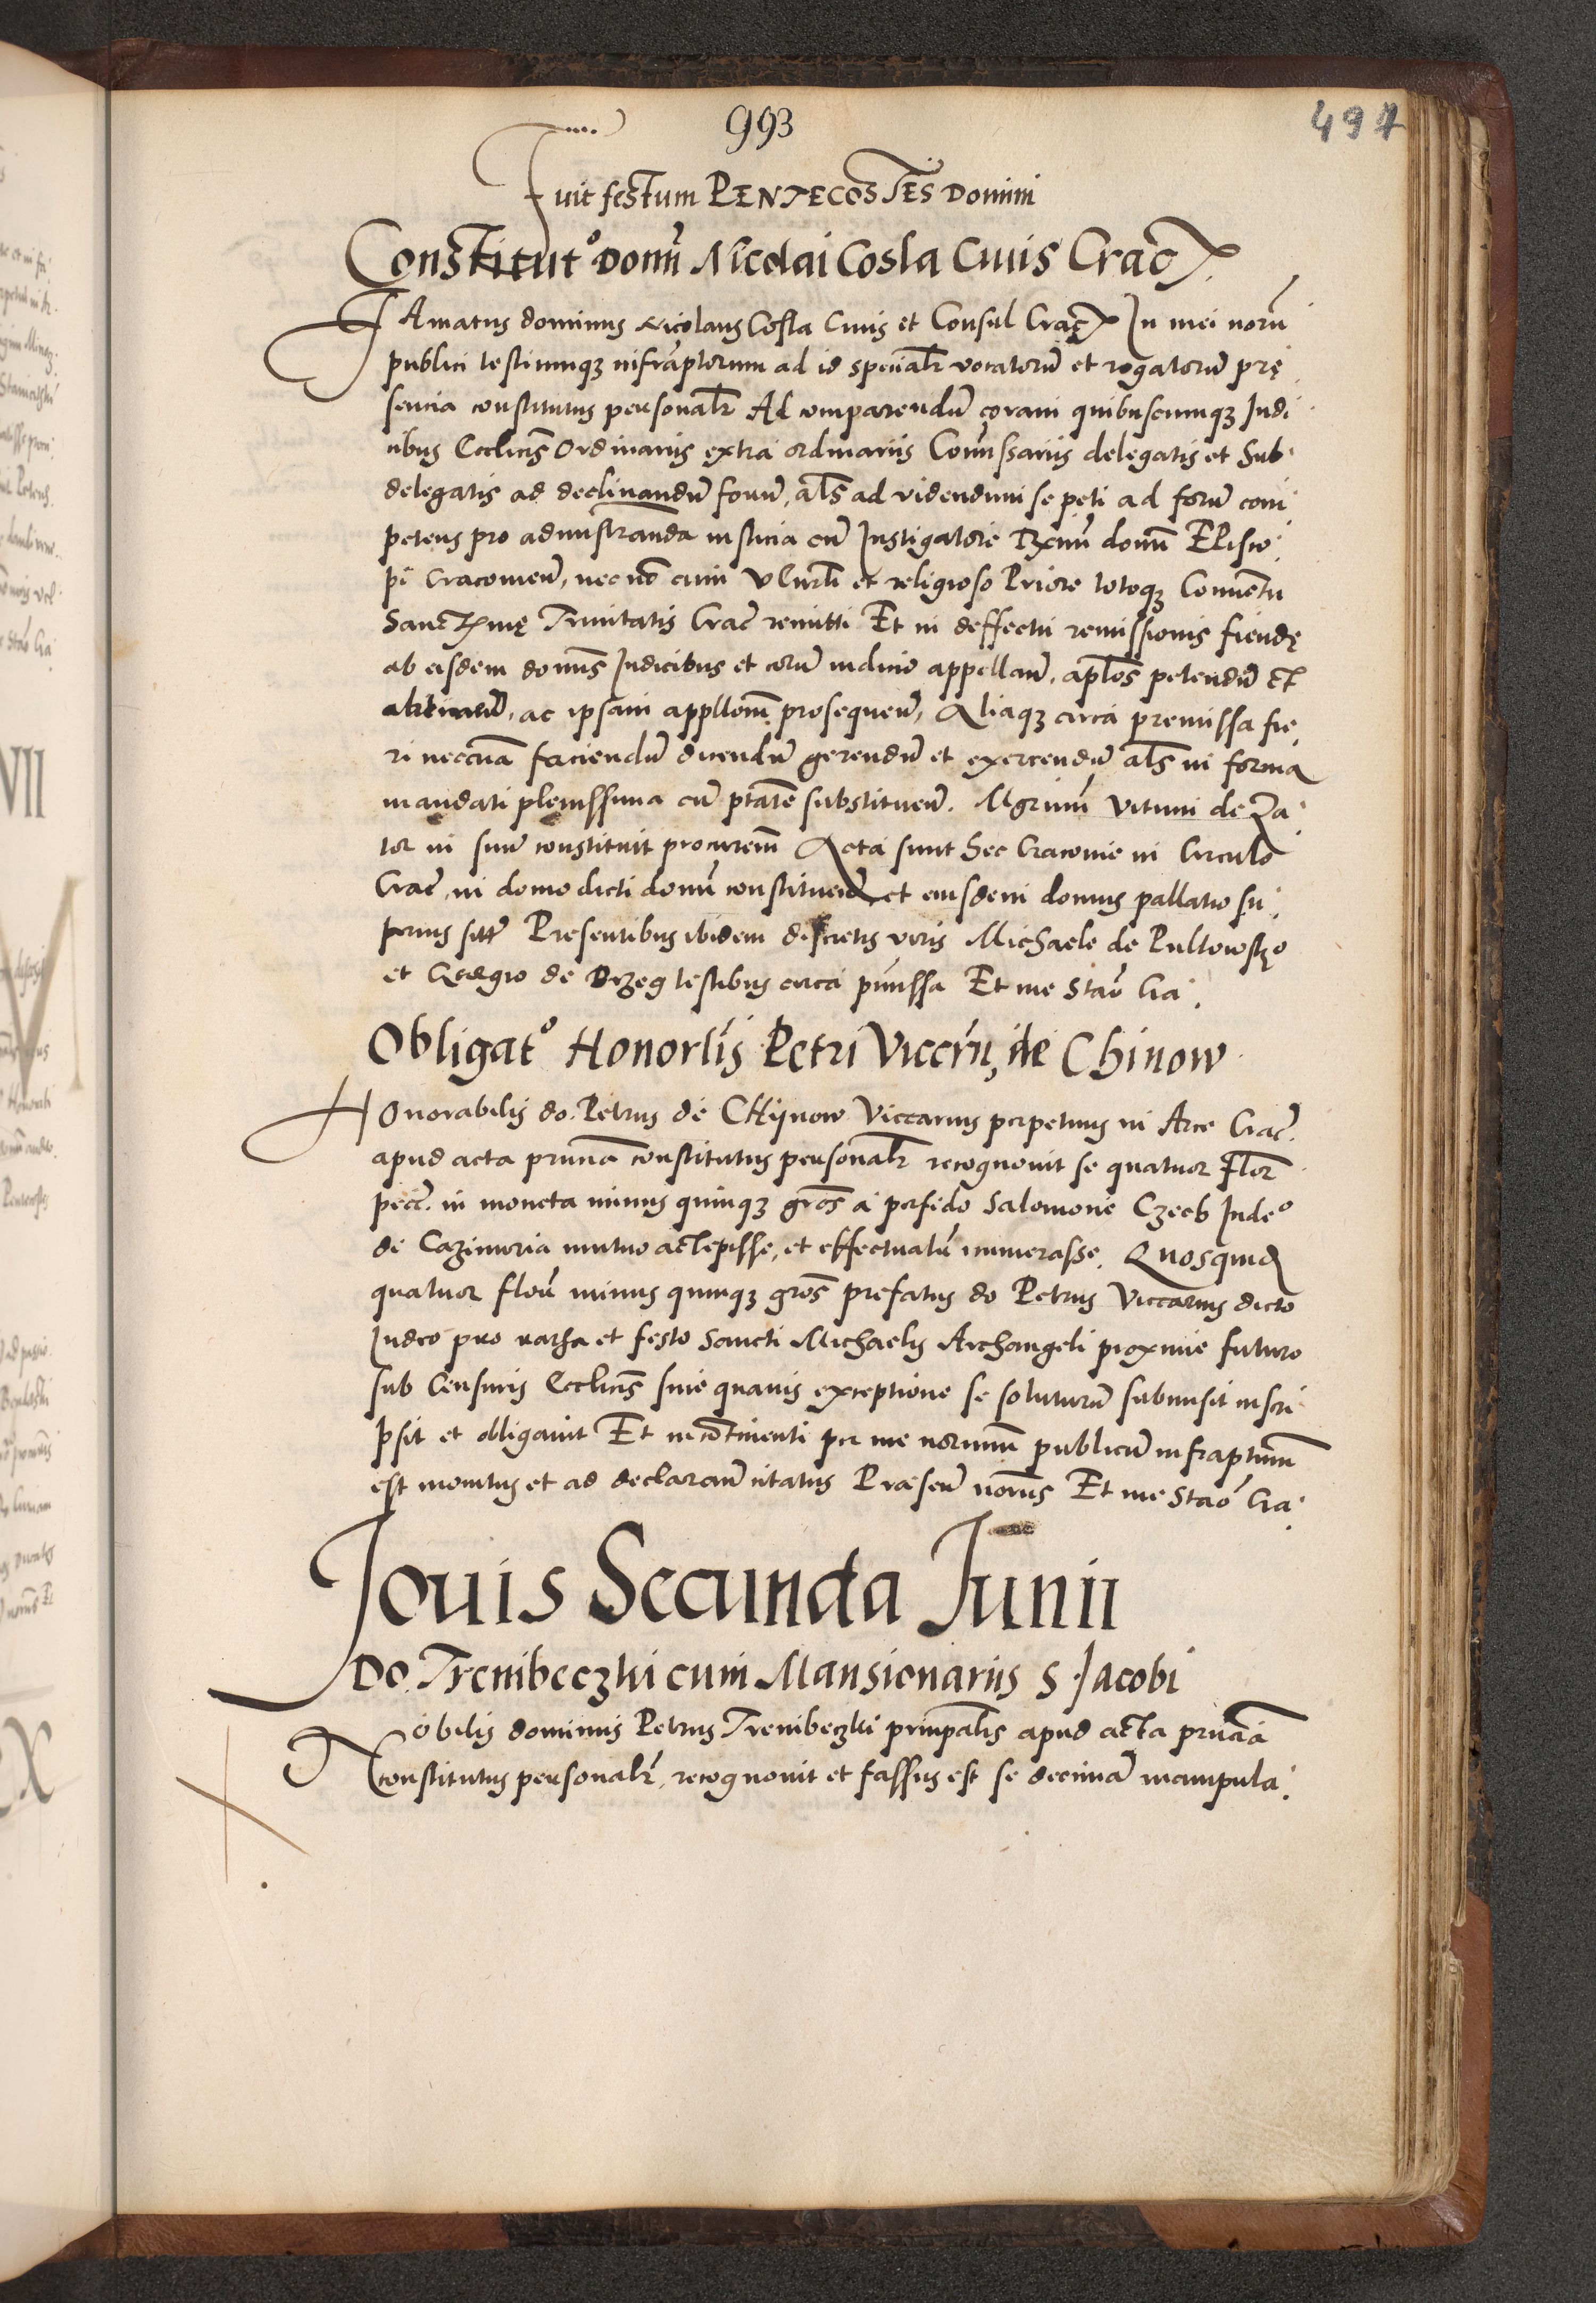 993
497
Fuit festum PENTECOSTES Domini
Constitut° Domī Nicolai Cosla Ciuis Crac
FAmatus dominus Nicolaus Cosla Ciuis et Consul Crac In mei norū
publici testiumqȝ infrāptorum ad id specialr vocatorū et rogatorū prę
sencia constitutus personalr Ad comparendū coram quibuscumqȝ Iudi
cibus Ecclicis Ordinariis extra ordinariis Comissariis delegatis et Sub
delegatis ad declinandū forum, als ad videndum se peti ad forū com
petens pro administranda iusticia cū Instigatore Rximi domī Episco
pi Cracouien, nec nō cum et religioso Priore totoqȝ Conuentu
Sanctxmę Trinitatis Crac remitti Et in deffectu remissionis fiendę
ab eisdem domis Iudicibus et eorū iudicio appellanū, aplos petendū et
obtinenū, ac ipsam appllonem prosequenū, Aliaqȝ circa premissa fie
ri neccria faciendū dicendū gerendū et exercendū als in forma
mandati plenissima cū ptate substituenū. Mgrum Vitum de Za
tor in suū constituit procurem Acta sunt hec Cracouie in Circulo
Crac, in domo dicti domī constituen et eiusdem domus pallatio su
perius sitt Presentibus ibidem discretis viris Michaele de Pultowsko
et Georgio de Brzeg testibus circa pmissa Et me Stao Cra
Obligat° Honorlis Petri Viccrii de Chinow
HOnorabilis do. Petrus de CHijnow Viccarius perpetuus in Arce Crac.
apud acta prnciā constitutus personalr recognouit se quatuor Flor
pecc. in moneta minus quinqȝ gros a perfido Salomone Czech Iudeo
de Cazimiria mutuo accepisse, et effectualr numerasse. Quosquid
quatuor flor minus quinqȝ gros prefatus do Petrus Viccarius dicto
Iudeo pro et festo Sancti Michaelis Archangeli proxime futuro
sub Censuris Ecclicis sine quauis exceptione se soluturū submisit inscri
psit et obligauit Et incontinenti per me norium publicum infraptum
est monitus et ad declaranū citatus Præsen noriis Et me Stao Cra
Iouis Secunda Iunii
DO. Trembeczki cum Mansionariis S. Jacobi
Nobilis dominus Petrus Trembeczki principalis apud acta prnciā
constitutus personalr, recognouit et fassus est se decimā manipula